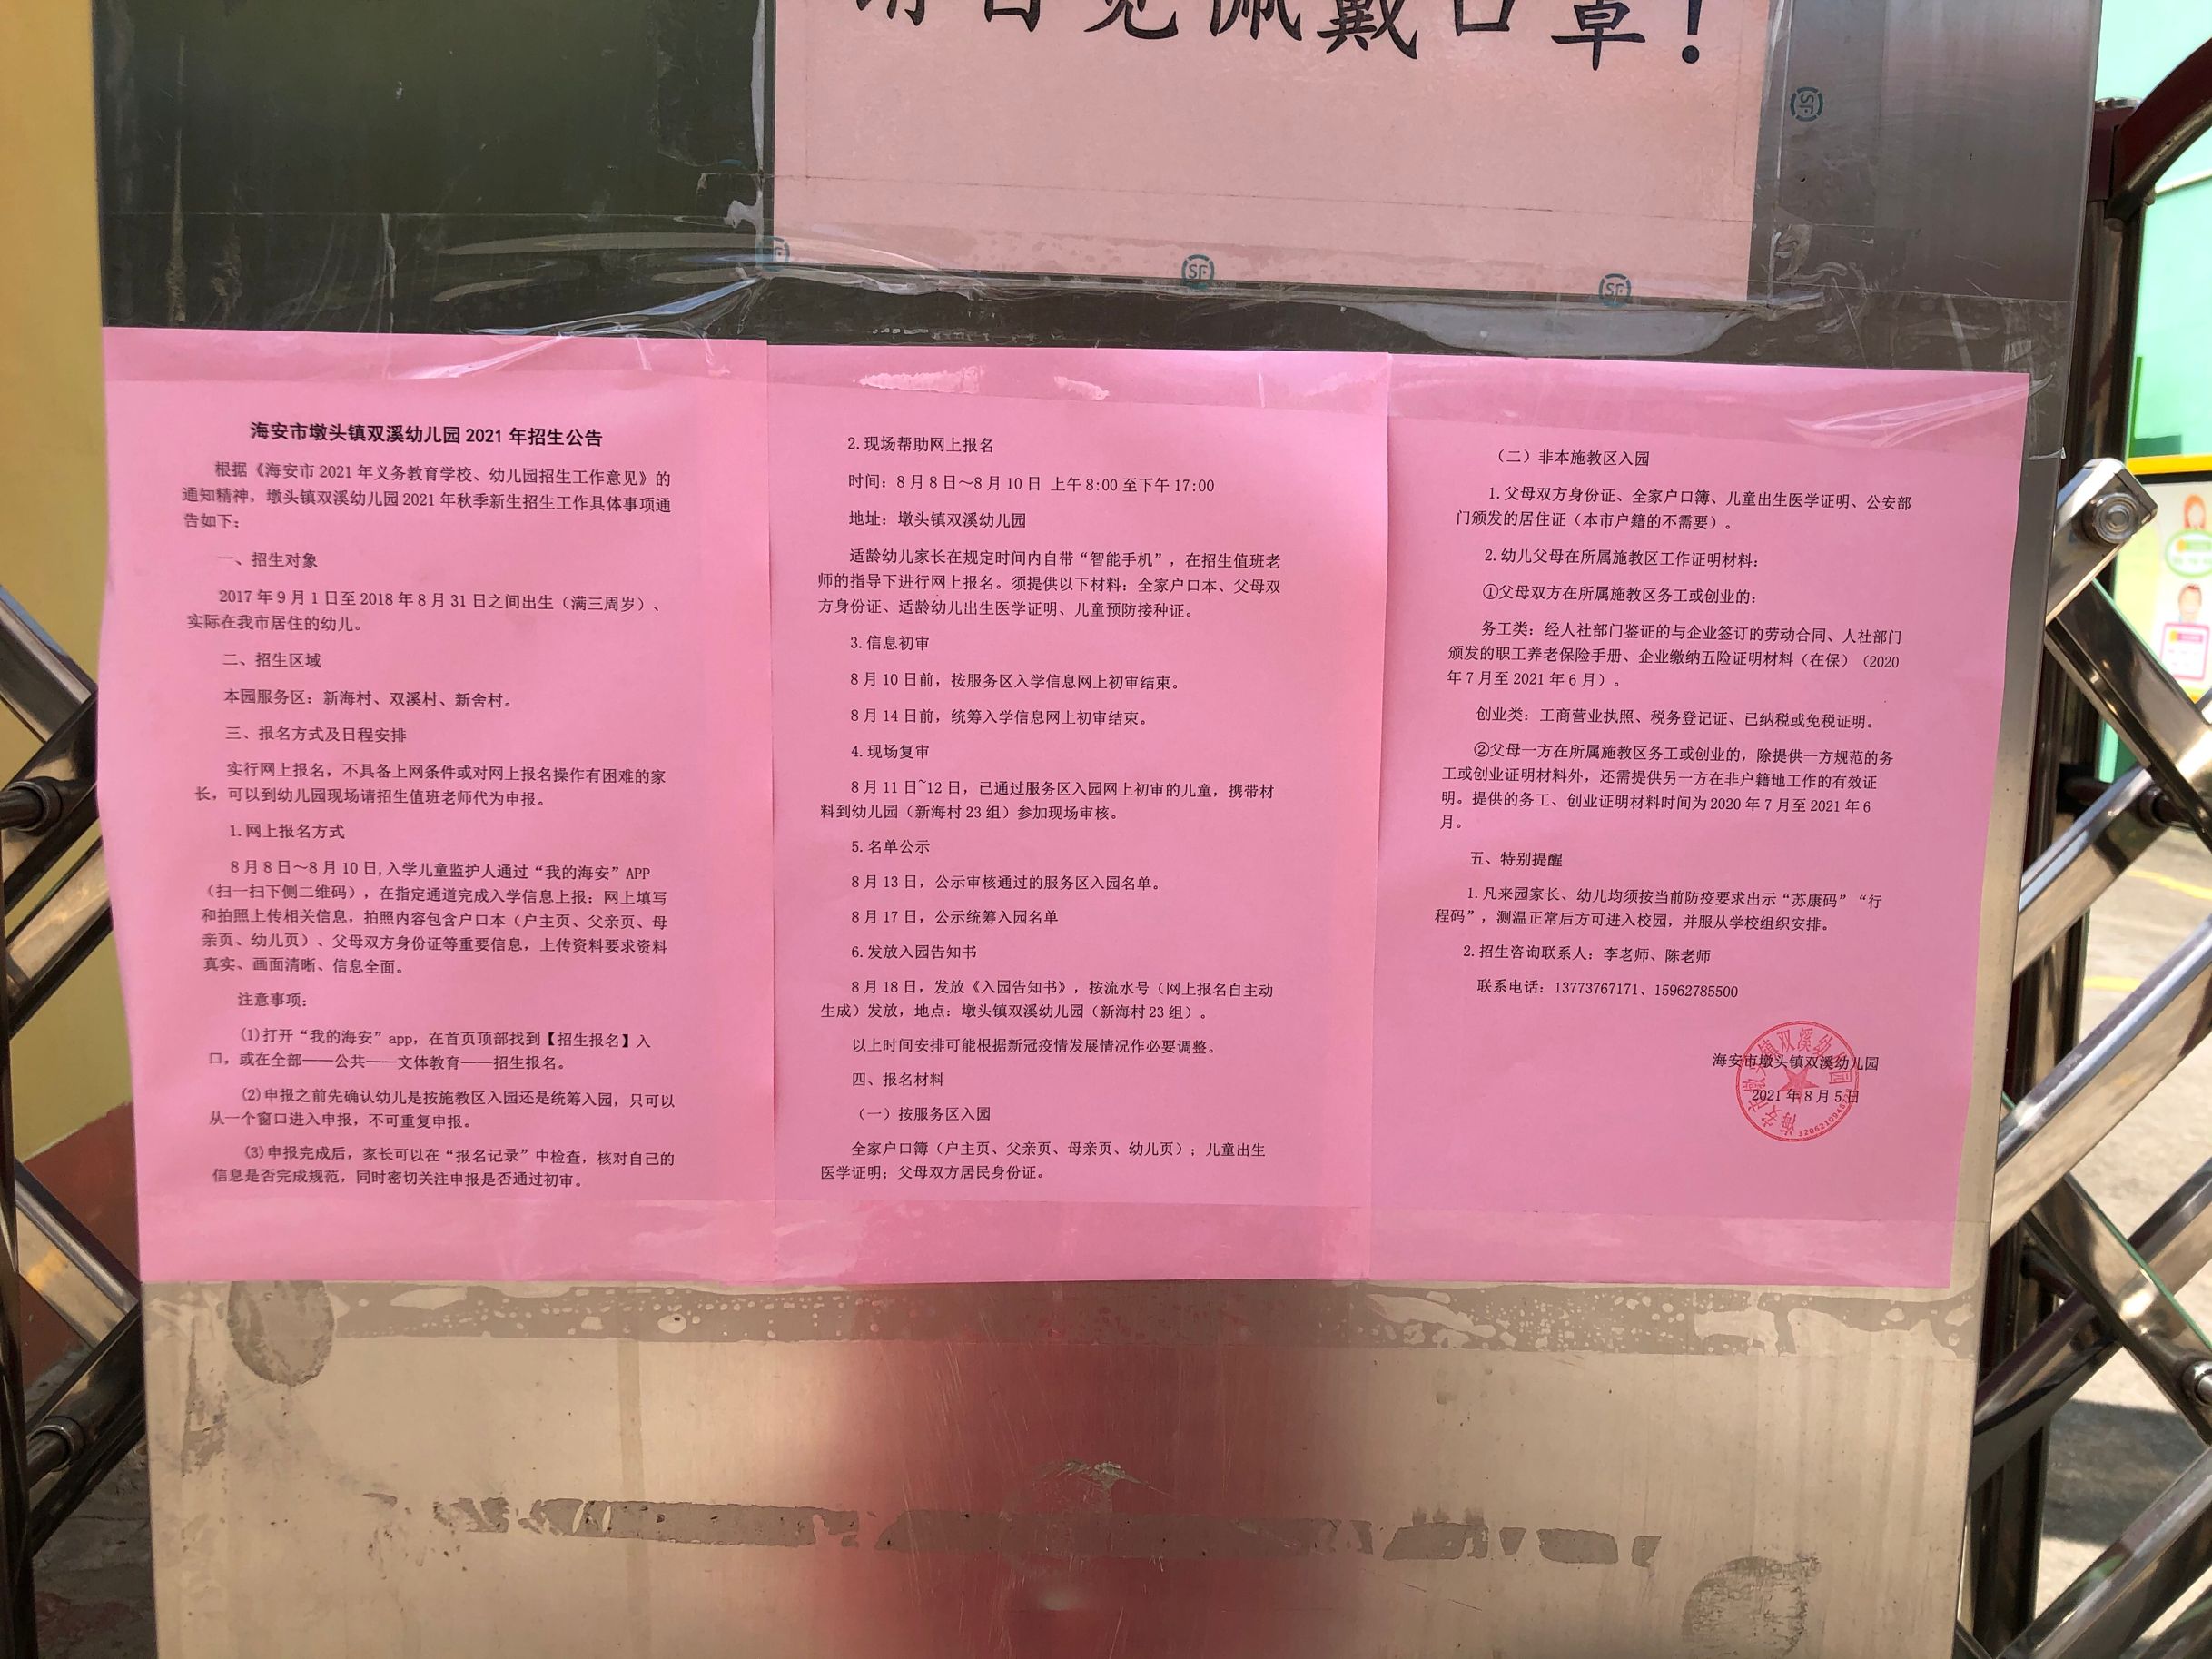 请自觉佩戴口罩！
SF
SF
SF
SF
海安市墩头镇双溪幼儿园2021年招生公告
根据《海安市2021年义务教育学校、幼儿园招生工作意见》的
通知精神，墩头镇双溪幼儿园2021年秋季新生招生工作具体事项通
告如下：
一、招生对象
2017年9月1日至2018年8月31日之间出生（满三周岁）、
实际在我市居住的幼儿。
二、招生区域
本园服务区：新海村、双溪村、新舍村。
三、报名方式及日程安排
实行网上报名，不具备上网条件或对网上报名操作有困难的家
长，可以到幼儿园现场请招生值班老师代为申报。
1.网上报名方式
8月8日～8月10日,入学儿童监护人通过“我的海安”APP
（扫一扫下侧二维码），在指定通道完成入学信息上报：网上填写
和拍照上传相关信息，拍照内容包含户口本（户主页、父亲页、母
亲页、幼儿页）、父母双方身份证等重要信息，上传资料要求资料
真实、画面清晰、信息全面。
注意事项：
(1)打开“我的海安”app，在首页顶部找到【招生报名】入
口，或在全部——公共——文体教育——招生报名。
(2)申报之前先确认幼儿是按施教区入园还是统筹入园，只可以
从一个窗口进入申报，不可重复申报。
(3)申报完成后，家长可以在“报名记录”中检查，核对自己的
信息是否完成规范，同时密切关注申报是否通过初审。
2.现场帮助网上报名
时间：8月8日～8月10日 上午8:00至下午17:00
地址：墩头镇双溪幼儿园
适龄幼儿家长在规定时间内自带“智能手机”，在招生值班老
师的指导下进行网上报名。须提供以下材料：全家户口本、父母双
方身份证、适龄幼儿出生医学证明、儿童预防接种证。
3.信息初审
8月10日前，按服务区入学信息网上初审结束。
8月14日前，统筹入学信息网上初审结束。
4.现场复审
8月11日~12日，已通过服务区入园网上初审的儿童，携带材
料到幼儿园（新海村23组）参加现场审核。
5.名单公示
8月13日，公示审核通过的服务区入园名单。
8月17日，公示统筹入园名单
6.发放入园告知书
8月18日，发放《入园告知书》，按流水号（网上报名自主动
生成）发放，地点：墩头镇双溪幼儿园（新海村23组）。
以上时间安排可能根据新冠疫情发展情况作必要调整。
四、报名材料
（一）按服务区入园
全家户口簿（户主页、父亲页、母亲页、幼儿页）；儿童出生
医学证明；父母双方居民身份证。
（二）非本施教区入园
1.父母双方身份证、全家户口簿、儿童出生医学证明、公安部
门颁发的居住证（本市户籍的不需要）。
2.幼儿父母在所属施教区工作证明材料：
①父母双方在所属施教区务工或创业的：
务工类：经人社部门鉴证的与企业签订的劳动合同、人社部门
颁发的职工养老保险手册、企业缴纳五险证明材料（在保）（2020
年7月至2021年6月）。
创业类：工商营业执照、税务登记证、已纳税或免税证明。
②父母一方在所属施教区务工或创业的，除提供一方规范的务
工或创业证明材料外，还需提供另一方在非户籍地工作的有效证
明。提供的务工、创业证明材料时间为2020年7月至2021年6
月。
五、特别提醒
1.凡来园家长、幼儿均须按当前防疫要求出示“苏康码”“行
程码”，测温正常后方可进入校园，并服从学校组织安排。
2.招生咨询联系人：李老师、陈老师
联系电话：13773767171、15962785500
海安市墩头镇双溪幼儿园
2021年8月5日
海安市墩头镇双溪幼儿园